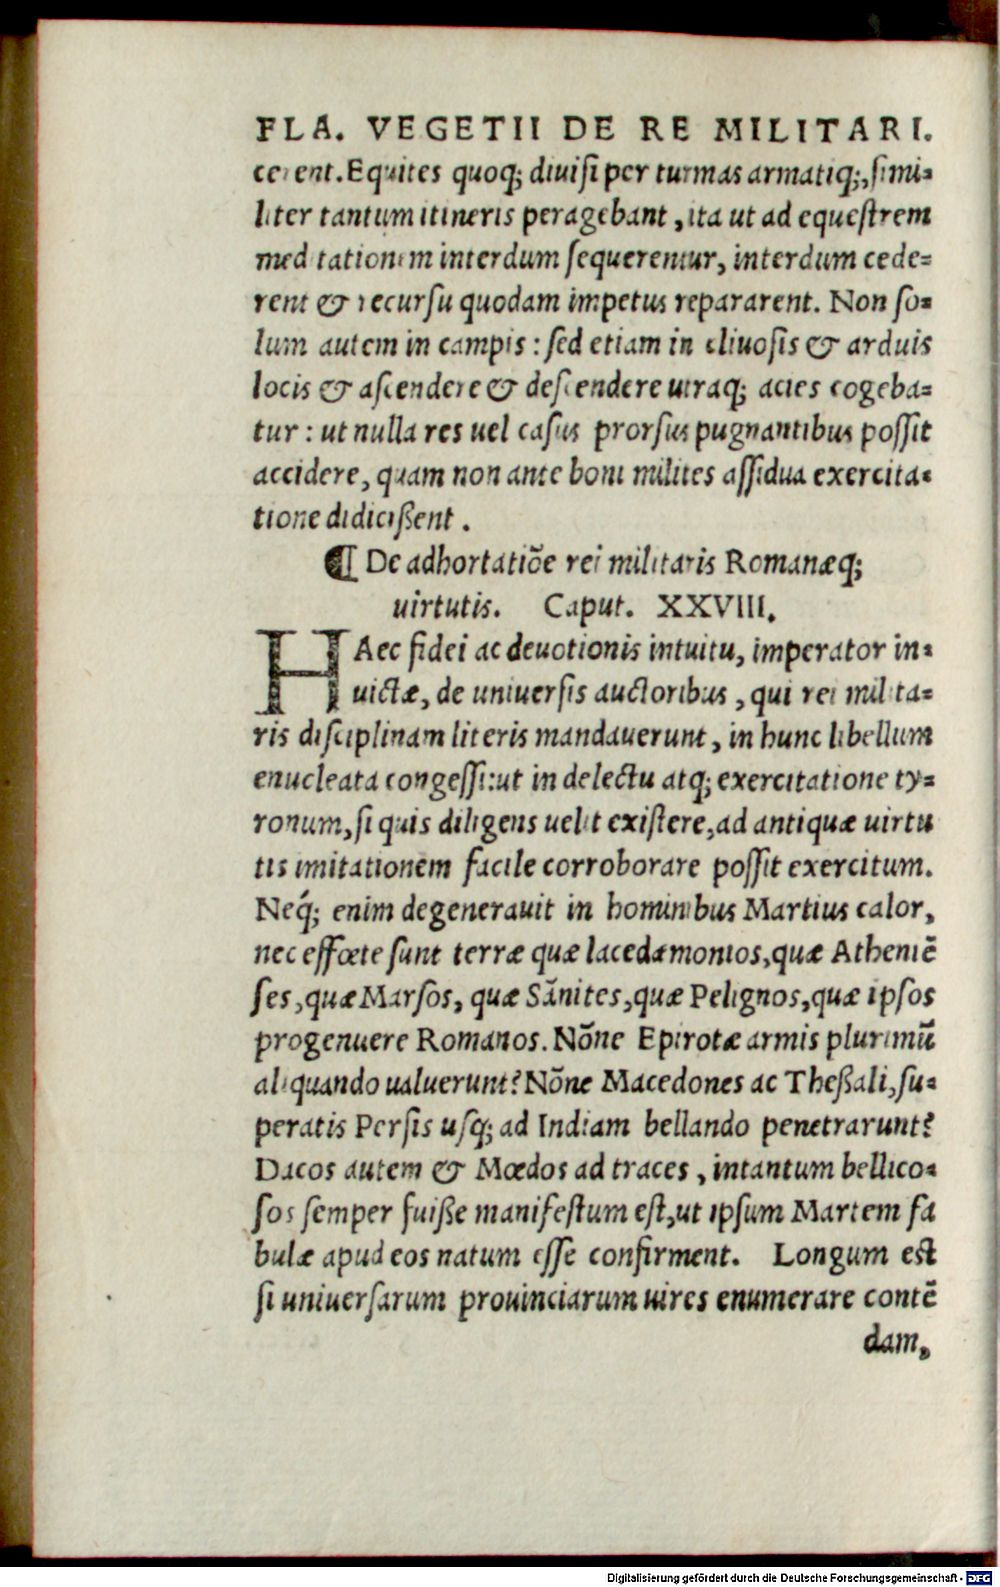 FLA. VEGETII DE RE MILITARI.
cerent. Equites quoq; diuisi per turmas armatiq;, simi-
liter tantum itineris peragebant, ita ut ad equestrem
meditationem interdum sequerentur, interdum cede-
rent & recursu quodam impetus repararent. Non so-
lum autem in campis: sed etiam in cliuosis & arduis
locis & ascendere & descendere utraq; acies cogeba-
tur: ut nulla res uel casus prorsus pugnantibus possit
accidere, quam non ante boni milites assidua exercita-
tione didicißent.
¶ De adhortatiõe rei militaris Romanæq;
uirtutis. Caput. XXVIII.
HAec fidei ac deuotionis intuitu, imperator in-
uictæ, de uniuersis auctoribus, qui rei milita-
ris disciplinam literis mandauerunt, in hunc libellum
enucleata congessi: ut in delectu atq; exercitatione ty-
ronum, si quis diligens uelit existere, ad antiquæ uirtu
tis imitationem facile corroborare possit exercitum.
Neq́; enim degenerauit in hominibus Martius calor,
nec effœte sunt terræ quæ lacedæmonios, quæ Atheniẽ
ses, quæ Marsos, quæ Sãnites, quæ Pelignos, quæ ipsos
progenuere Romanos. Nõne Epirotæ armis plurimũ
aliquando ualuerunt? Nõne Macedones ac Theßali, su-
peratis Persis usq; ad Indiam bellando penetrarunt?
Dacos autem & Mœdos ad traces, intantum bellico-
sos semper fuiße manifestum est, ut ipsum Martem fa
bulæ apud eos natum esse confirment. Longum est
si uniuersarum prouinciarum uires enumerare contẽ
dam,
Digitalisierung gefördert durch die Deutsche Forschungsgemeinschaft - DFG